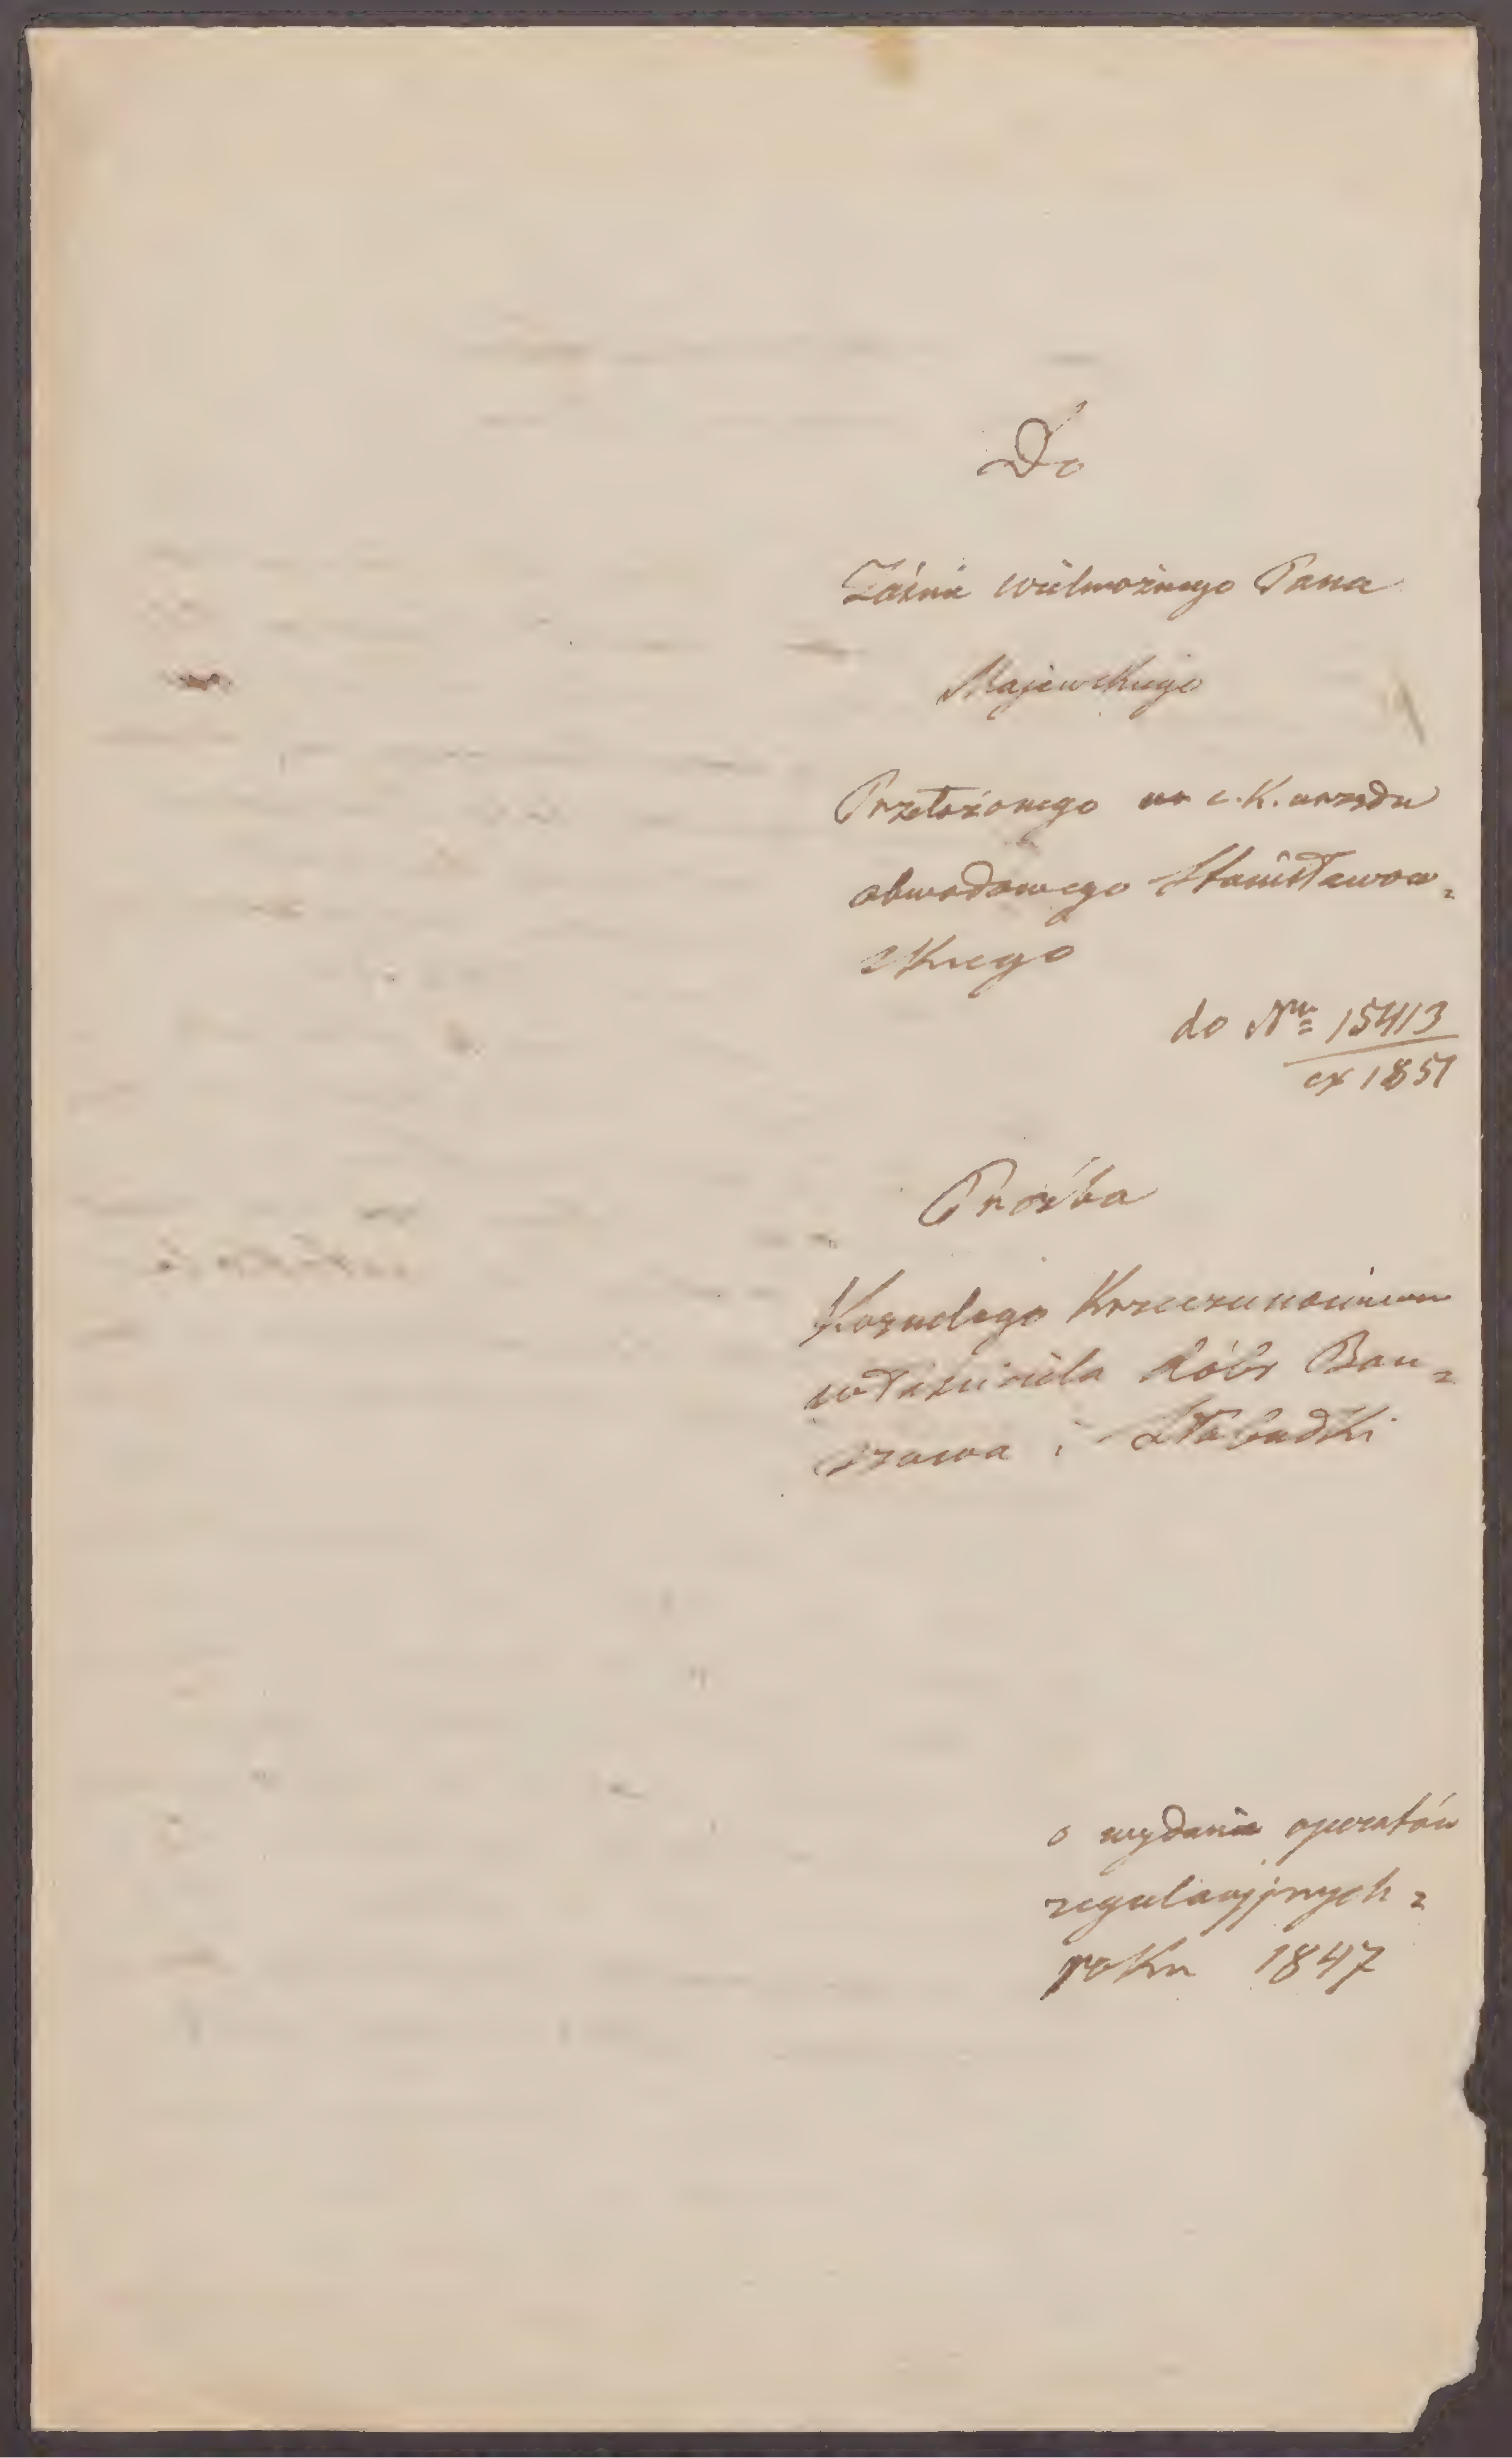 Do
Jaśnie wielmożnego Pana
Majewskiego
Przełożonego c. K. urzędu
obwodowego Stanisławow=
skiego
do Nru 15413
ex 1851
Prośba
Kornelego Krzeczunowicza
właściciela dóbr Bou=
szowa i Słobudki
o wydanie operatów
regulacyjnych z
roku 1847